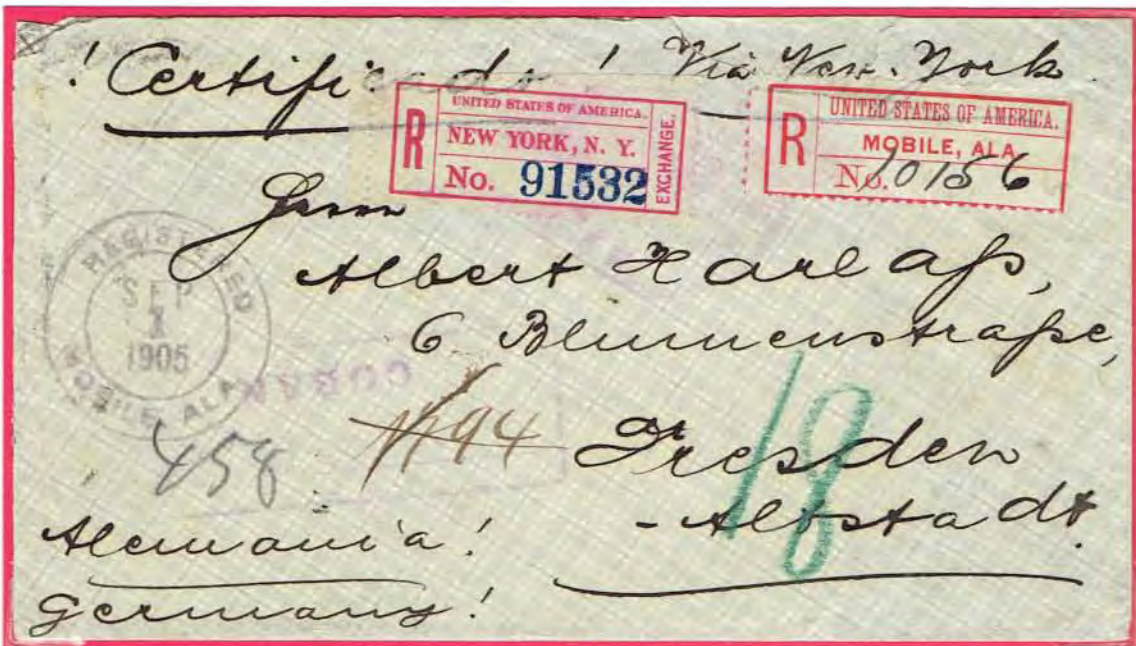 ! Certificado ! Via New-York.
UNITED STATES OF AMERICA.
R NEW YORK, N. Y.
No. 91532
EXCHANGE.
UNITED STATES OF AMERICA.
R MOBILE, ALA.
No. 10156
Herrn
Albert Harlaß,
6 Blumenstraße,
Dresden
-Altstadt.
REGISTERED
SEP
1
1905
MOBILE, ALA
COBAN
N 94
458
18
Alemania!
Germany!